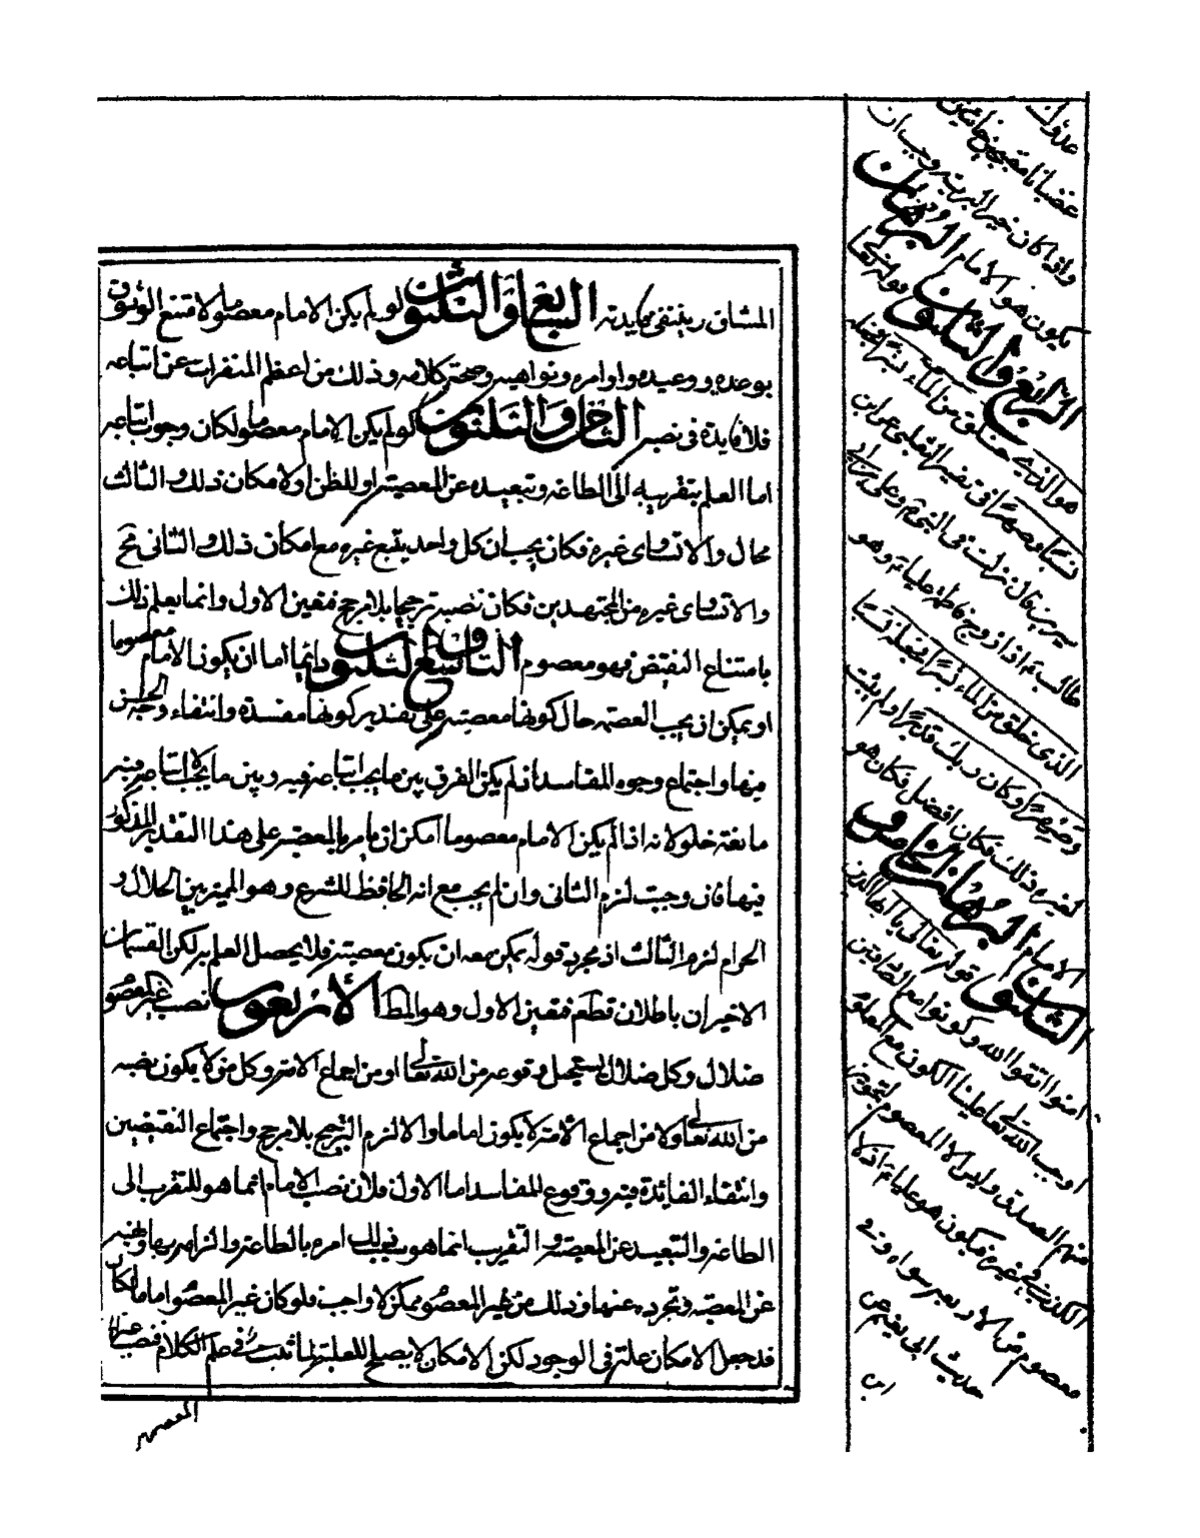 المشاق رينتفى فايدته السابع والثلثون لو لم يكن الامام معصوما لامتنع الوثوق
بوعده ووعيده واوامره ونواهيه وصحة كلامه وذلك من اعظم المنفرات عن اتباعه
فلا فايدة فى نصبه الثامن والثلثون لو لم يكن الامام معصوما لكان وجوب اتباعه
اما العلم بتقريبه الى الطاعه وتبعيده عن المعصيته او للظن او لامكان ذلك والثالث
محال والا تساوى غيره فكان يجب ان كل واحد يتبع غيره مع امكان ذلك والثانى مح
والا تساوى غيره من المجتهدين فكان نصبه ترجيحا بلا مرجح فتعين الاول وانما يعلم ذلك
بامتناع النقيض فهو معصوم التاسع والثلثون دائما اما ان يكون الامام معصوما
او يمكن ان يجب المعصيه حال كونها معصيته على تقدير كونها مفسدة وانتفاء وجه الحسن
منها واجتماع وجوه المفاسد ان لم يكن الفرق بين ما يجب اتباعه فيه وبين ما لا يجب اتباعه فيه
مانعة خلو لانه اذا لم يكن الامام معصوما امكن ان يامر بالمعصيه على هذا التقدير المذكور
فيها فان وجبت لزم الثانى وان لم يجب مع انه الحافظ للشرع وهو المميز بين الحلال و
الحرام لزم الثالث اذ مجرد قوله يمكن معه ان يكون معصيته فلا يحصل العلم به لكن القسمان
الاخيران باطلان قطعا فتعين الاول وهو المط الاربعون نصب غير المعصوم
ضلال وكل ضلال يستحيل وقوعه من الله تعالى او من اجماع الامة وكل من لا يكون نصبه
من الله تعالى ولا من اجماع الأمة لا يكون اماما والا لزم الترجيح بلا مرجح واجتماع النقيضين
وانتفاء الفائدة فيه ووقوع المفاسد اما الاول فلان نصب الامام انما هو للتقرب الى
الطاعه والتبعيد عن المعصيه والتقريب انما هو بذلك امره بالطاعة والزامه بها ونهيه
عن المعصيه وتجرده عنها وذلك من غير المعصوم ممكن لا واجب فلو كان غير المعصوم اماما لكان
قد جعل الامكان علة فى الوجود لكن الامكان لا يصلح للعلية لما ثبت فى علم الكلام فنصب غير
المعصوم
عدوان
غضبانا مقمحين
واذا كان خير البرية وجب ان
يكون هو الامام البرهان
الرابع والثلثون قوله تعالى
هو الذى خلق من الماء بشرا فجعله
نسبا وصهرا فى تفسير الثعلبى عن ابن
سيرين قال نزلت فى النبى ص وعلى بن ابى
طالب ع اذا زوج فاطمة عليا ع وهو
الذى خلق من الماء بشرا فجعله نسبا
وصهرا وكان ربك قديرا ولم يثبت
لغيره ذلك فكان افضل فكان هو
الامام البرهان الخامس و
الثلثون قوله تعالى يا ايها الذين
امنوا اتقوا الله وكونوا مع الصادقين
اوجب الله تعالى علينا الكون مع المعلوم
منهم الصدق وليس الا المعصوم لتجويز
الكذب فى غيره فيكون هو عليا ع اذ لا
معصوم من الاربعه سواه وفى
حديث ابى نعيم عن
ابن